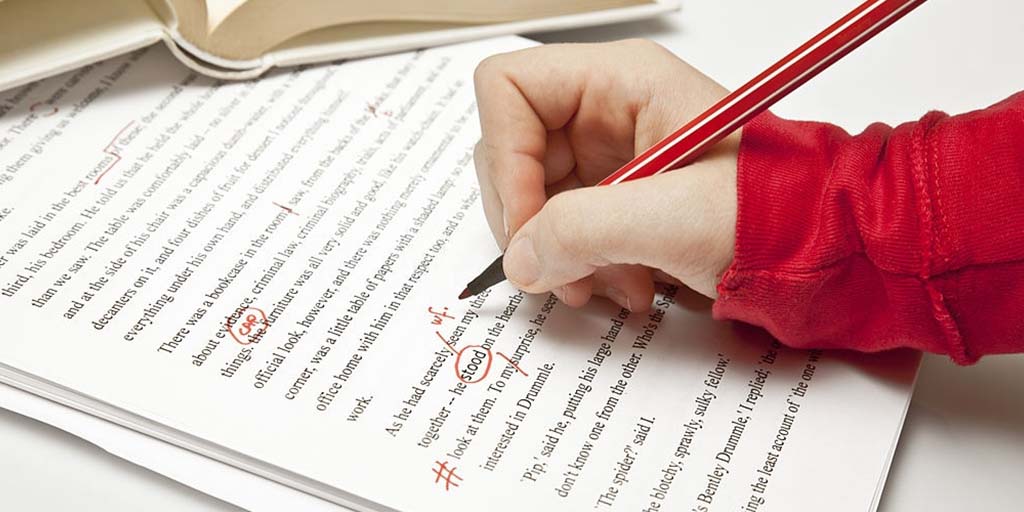 were
them giving us welcome, I know
was laid in the best rooms of these; the second
third, his bedroom. He told us that he held the whole
than we saw. The table was comfortably laid – no silver in
and at the side of his chair was a capacious dumb-waiter, with a
decanters on it, and four dishes of fruit for dessert I noticed throughout
everything under his own hand, and distributed everything himself.
There was a bookcase in the room; I saw, from the backs of the
about evidence, criminal law, criminal biography, trials, acts of parliament, and such
things. the furniture was all very solid and good, like his watch-chain. It
cap
official look, however, and there was nothing merely ornamental to
corner, was a little table of papers with a shaded lamp: so
office home with him in that respect too, and to
work.
wf
As he had scarcely seen my
together -- he stood on the
# look at them. To my surprise, he
interested in Drummle.
'Pip,' said he, putting his large hand on
don't know one from the other. Who's the
'The spider?' said I.
blotchy, sprawly, sulky fellow.'
Bentley Drummle,' I replied; 'the
the least account of 'the one